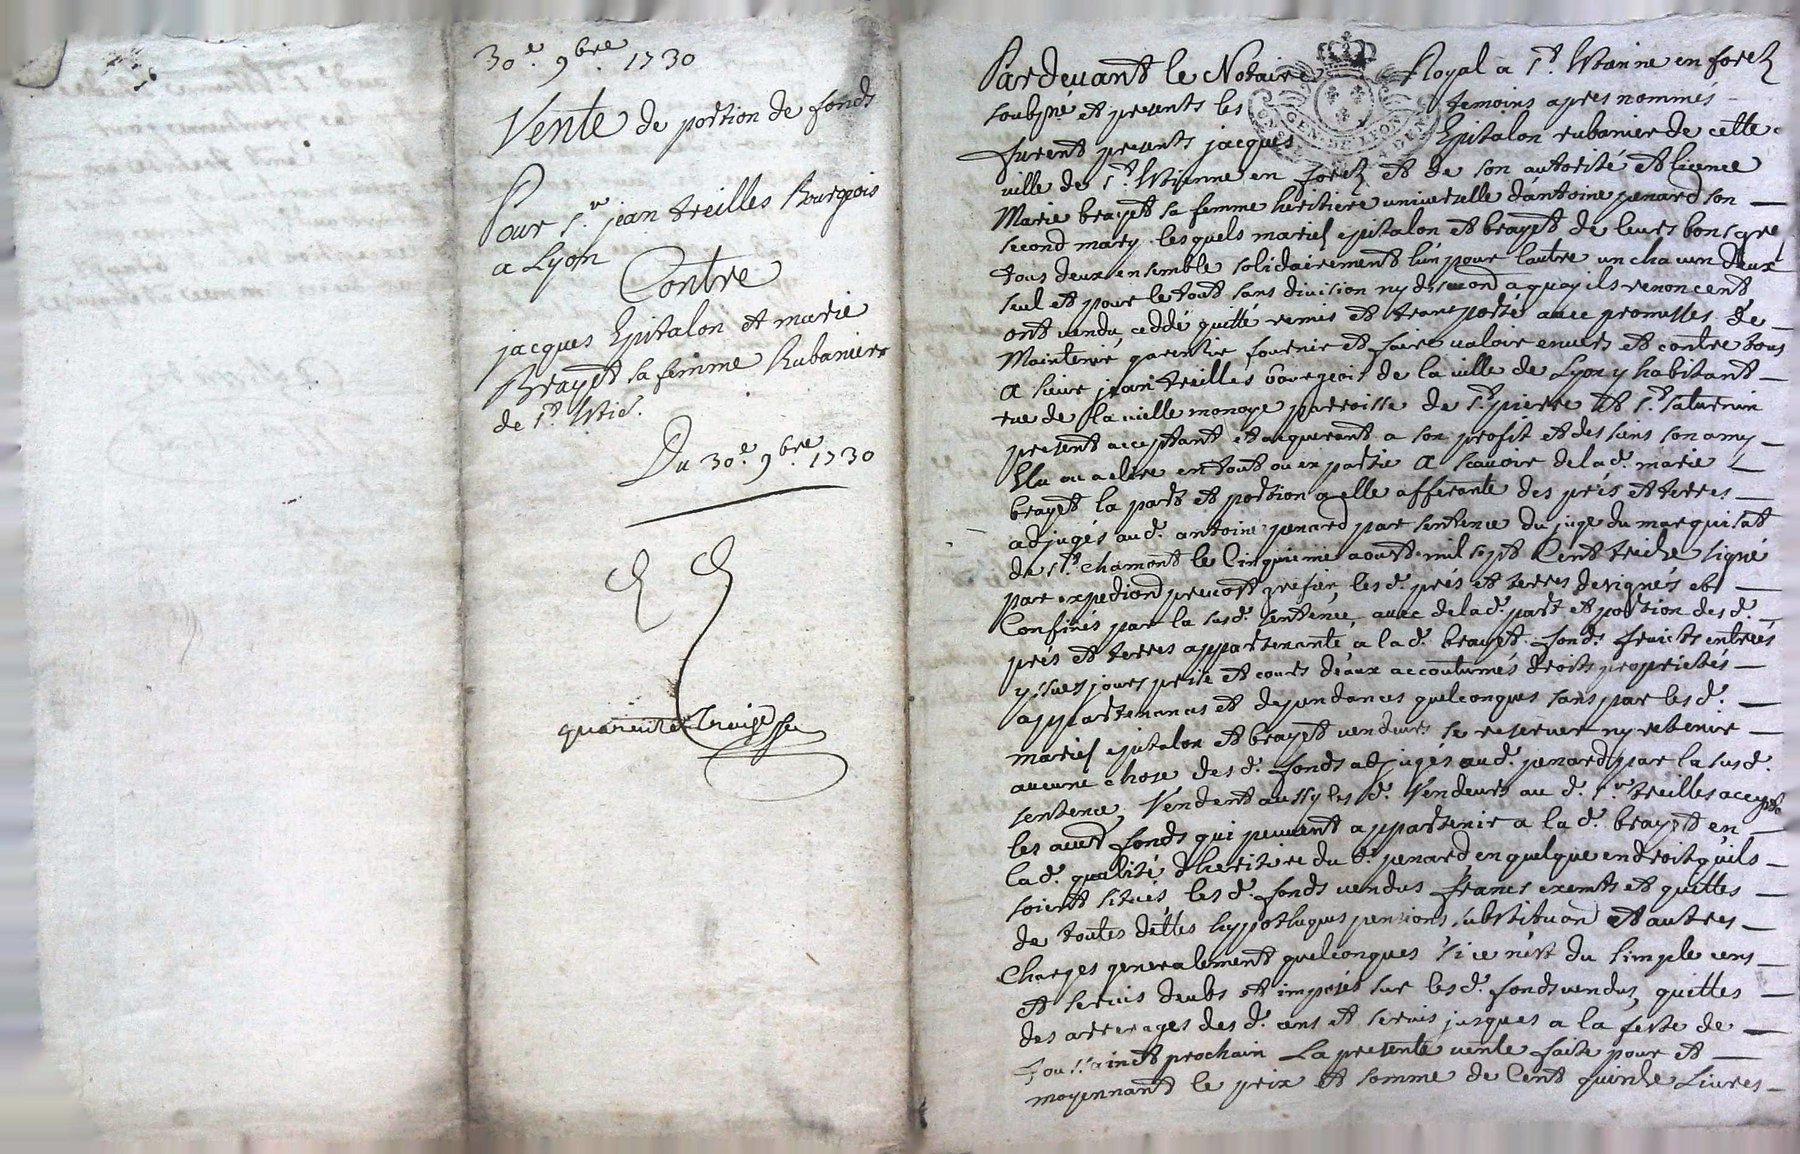 30e. 9bre. 1730
Vente de portion de fonds
Pour Sr. jean treilles Bourgeois
a Lyon
Contre
jacques Epitalon et marie
Brayet sa femme Rubanier
de St. Etie.
Du 30e. 9bre. 1730
quarente
Pardevant le Notaire Royal a St. Etienne en forez
soubsné et presents les temoins apres nommés
furent presents jacques Epitalon rubanier de cette
ville de St. Etienne en forez et de son autorité et licence
Marie brayet sa femme heritiere universelle d'antoine penard son
second mary lesquels mariés epitalon et brayet de leurs bons gre
tous deux ensemble solidairement l'un pour l'autre un chacun d'eux
seul et pour le tout sans division ny discuon a quoy ils renoncent
ont vendu, ceddé quitté remis et transporté avec promesses de
Maintenir garentir fournir et faire valoir envers et contre tous
A sieur jean treilles bourgeois de la ville de Lyon y habitant
rue de la vielle monoye parroisse de St. pierre et St. saturnin
present acceptant et aquerant a son profit et des siens son amy
Elu ou a elire en tout ou en partie A scavoir de la d. marie
brayet la part et portion a elle afferante des prés et terres
adjugés aud. antoine penard par sentence du juge du marquisat
de St. chamont le Cinquieme aoust mil sept Cent treize signé
par expedion prevost grefier, les d. prés et terres designés et
Confinés par la susd. sentence, avec de la d. part et portion des d.
prés et terres appartenante a la d. brayet fonds fruicts entrées
yssues jours prise et cours d'eaux accoutumés droits proprietés
appartenances et dependances quelconques sans par les d.
mariés epitalon et brayet vendeurs se reserver ny retenir
aucune chose des d. fonds adjugés aud. penard par la susd.
sentence, Vendent aussy les d. Vendeurs au d. Sr. treilles accepte
les autres fonds qui peuvent appartenir a la d. brayet en
la d. qualité d'heritiere du d. penard en quelque endroit qu'ils
soient situés les d. fonds vendus francs exempts et quittes
de toutes dettes hypotheques pensions substituon et autres
Charges generalement quelconques si ce n'est du simple cens
et servis deubs et imposés sur les d. fonds vendus, quittes
des arrerages des d. cens et servis jusques a la feste de
Toussainct prochain La presente vente faite pour et
moyennant le prix et somme de Cent quinze Livres